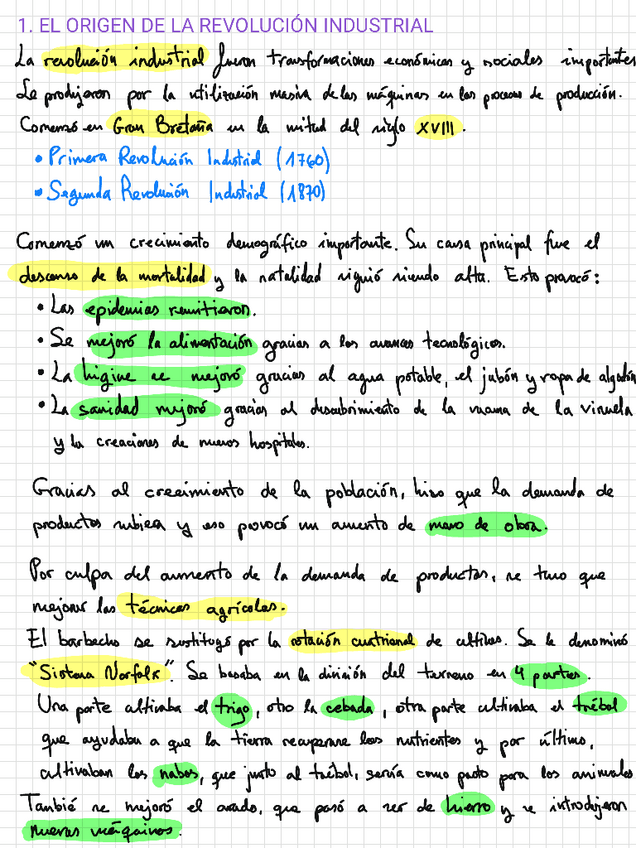 1. EL ORIGEN DE LA REVOLUCIÓN INDUSTRIAL
La revolución industrial fueron transformaciones económicas y sociales importantes
Se produjeron por la utilización masiva de las máquinas en los procesos de producción.
Comenzó en Gran Bretaña en la mitad del siglo XVIII.
• Primera Revolución Industrial (1760)
• Segunda Revolución Industrial (1870)
Comenzó un crecimiento demográfico importante. Su causa principal fue el
descenso de la mortalidad y la natalidad siguió siendo alta. Esto provocó:
• Las epidemias remitieron.
• Se mejoró la alimentación gracias a los avances tecnológicos.
• La higine se mejoró gracias al agua potable, el jabón y ropa de algodón
• La sanidad mejoró gracias al descubrimiento de la vacuna de la viruela
y la creaciones de nuevos hospitales.
Gracias al crecimiento de la población, hizo que la demanda de
productos subiera y eso provocó un aumento de mano de obra.
Por culpa del aumento de la demanda de productos, se tuvo que
mejorar las técnicas agrícolas.
El barbecho se sustituyó por la rotación cuatrienal de cultivos. Se le denominó
"Sistema Norfolk". Se basaba en la división del terreno en 4 partes.
Una parte cultivaba el trigo, otro la cebada, otra parte cultivaba el trébol
que ayudaba a que la tierra recuperase los nutrientes y por último,
cultivaban los nabos, que junto al trébol, servía como pasto para los animales
Tambié se mejoró el arado, que pasó a ser de hierro y se introdujeron
nuevas máquinas.